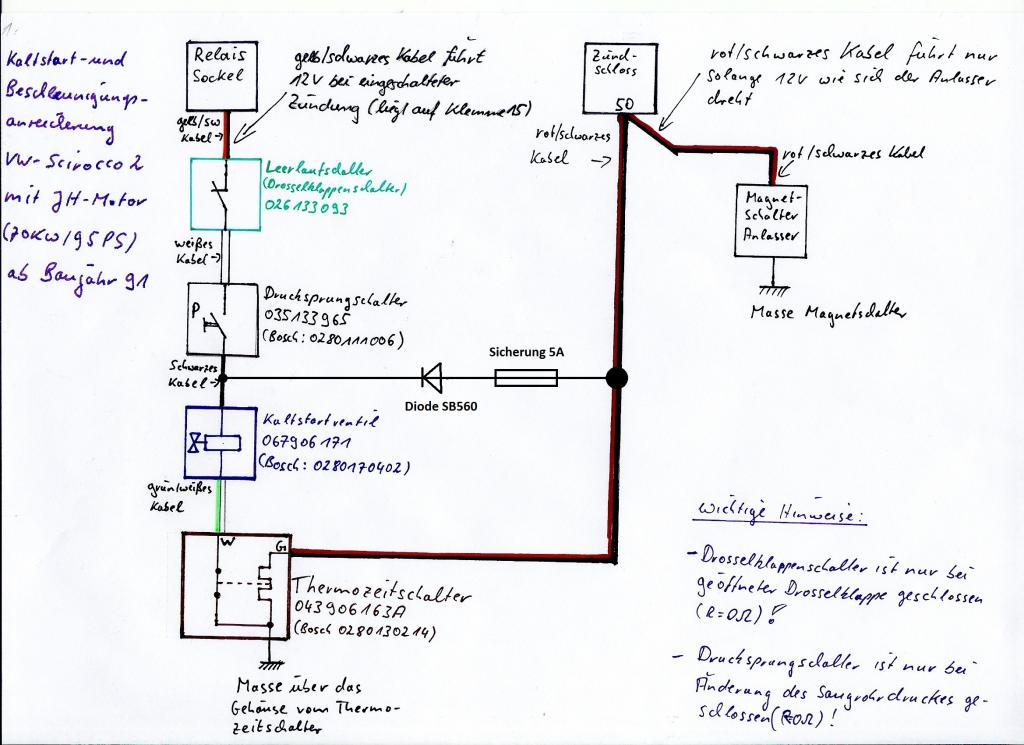 1.
Kaltstart- und
Beschleunigungs-
anreicherung
VW-Scirocco 2
mit JH-Motor
(70KW/95PS)
ab Baujahr 91
Relais
Sockel
gelb/schwarzes Kabel führt
12V bei eingeschalteter
Zündung (liegt auf Klemme 15)
gelb/sw
Kabel
Leerlaufschalter
(Drosselklappenschalter)
026133093
weißes
Kabel
P
Drucksprungschalter
035133965
(Bosch: 0280111006)
Schwarzes
Kabel
Diode SB560
Sicherung 5A
Kaltstartventil
067906171
(Bosch: 0280170402)
grün/weißes
Kabel
W
G
Thermozeitschalter
043906163A
(Bosch 0280130214)
Masse über das
Gehäuse vom Thermo-
zeitschalter
Zünd-
schloss
50
rot/schwarzes
Kabel
rot/schwarzes Kabel führt nur
solange 12V wie sich der Anlasser
dreht
rot/schwarzes Kabel
Magnet-
schalter
Anlasser
Masse Magnetschalter
wichtige Hinweise:
- Drosselklappenschalter ist nur bei
geöffneter Drosselklappe geschlossen
(R=0Ω)!
- Drucksprungschalter ist nur bei
Änderung des Saugrohrdruckes ge-
schlossen (R=0Ω)!